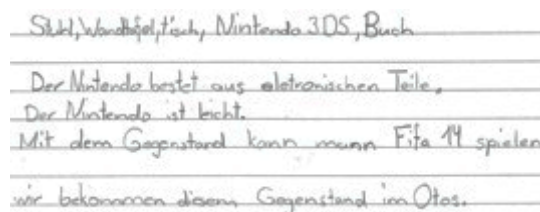 Stuhl, Wandtafel, tisch, Nintendo 3DS, Buch
Der Nintendo bestet aus eletronischen Teile.
Der Nintendo ist leicht.
Mit dem Gegenstand kann mann Fifa 14 spielen
wir bekommen diesem Gegenstand im Otos.